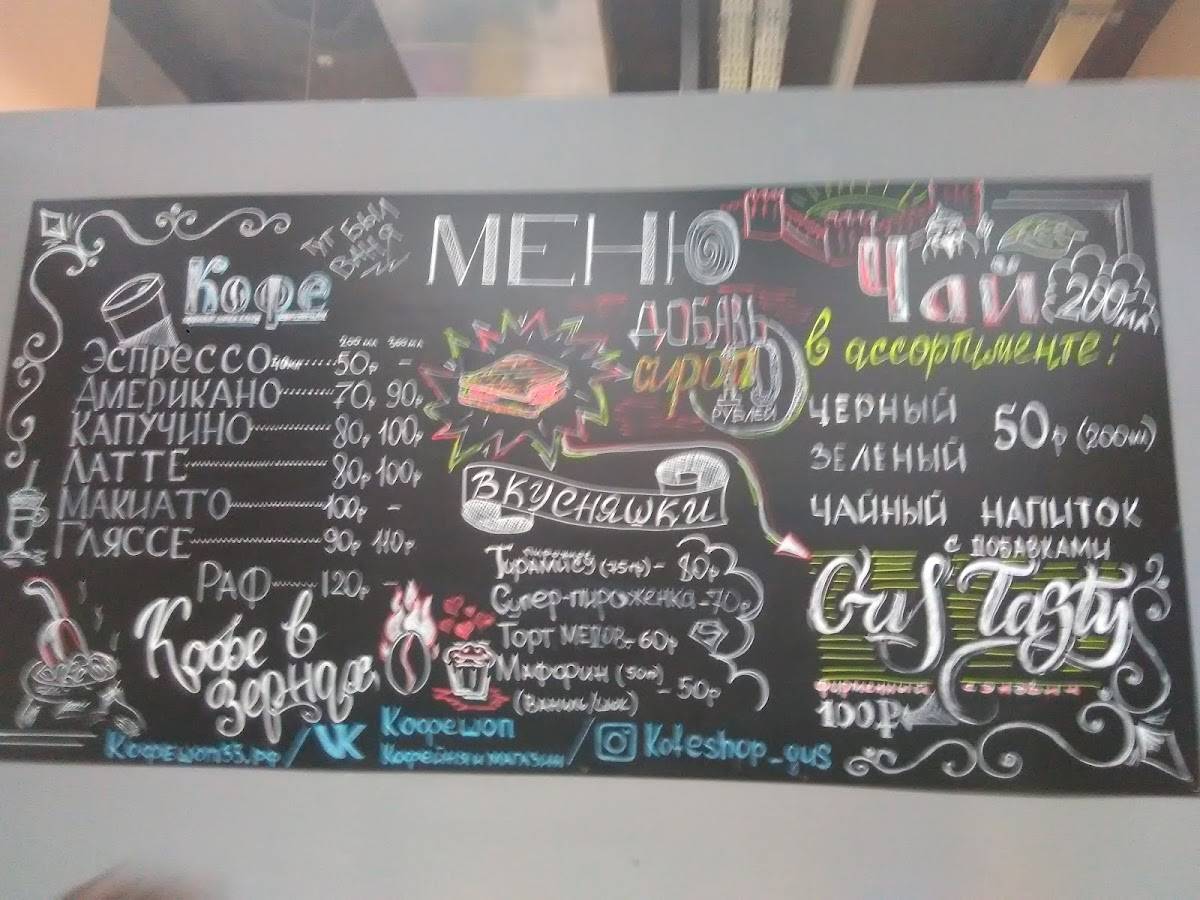 МЕНЮ
ТУТ БЫЛ
ВАНЯ
Кофе
200 мл 300 мл
Эспрессо 40мл 50р -
Американо 70р 90р
Капучино 80р 100р
Латте 80р 100р
Макиато 100р -
Гляссе 90р 110р
Раф 120р -
Кофе в
зернах
ДОБАВЬ
сироп
10
РУБЛЕЙ
ВКУСНЯШКИ
пирожное
Тирамису (75гр) - 80р
Супер-пироженка - 70р
Торт МЕДОВ. - 60р
Маффин (50гр)
(ваниль/шок) - 50р
Чай
200мл
в ассортименте:
ЧЕРНЫЙ
50р (200мл)
ЗЕЛЕНЫЙ
ЧАЙНЫЙ НАПИТОК
С ДОБАВКАМИ
Gus Tasty
фирменный сэндвич
100р
Кофешоп33.рф / VK Кофешоп
Кофейный магазин / Kofeshop_gus